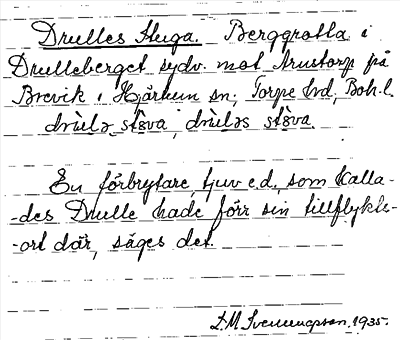 Drulles Stuga. Berggrotta i
Drulleberget sydv. mot Arustorp på
Brevik i Hjärtum sn, Torpe hd, Boh. l.
drùlə stöva, drùləs stöva.
En förbrytare, tjuv e.d., som kalla-
-des Drulle hade förr sin tillflykts-
-ort där, säges det.
1935.